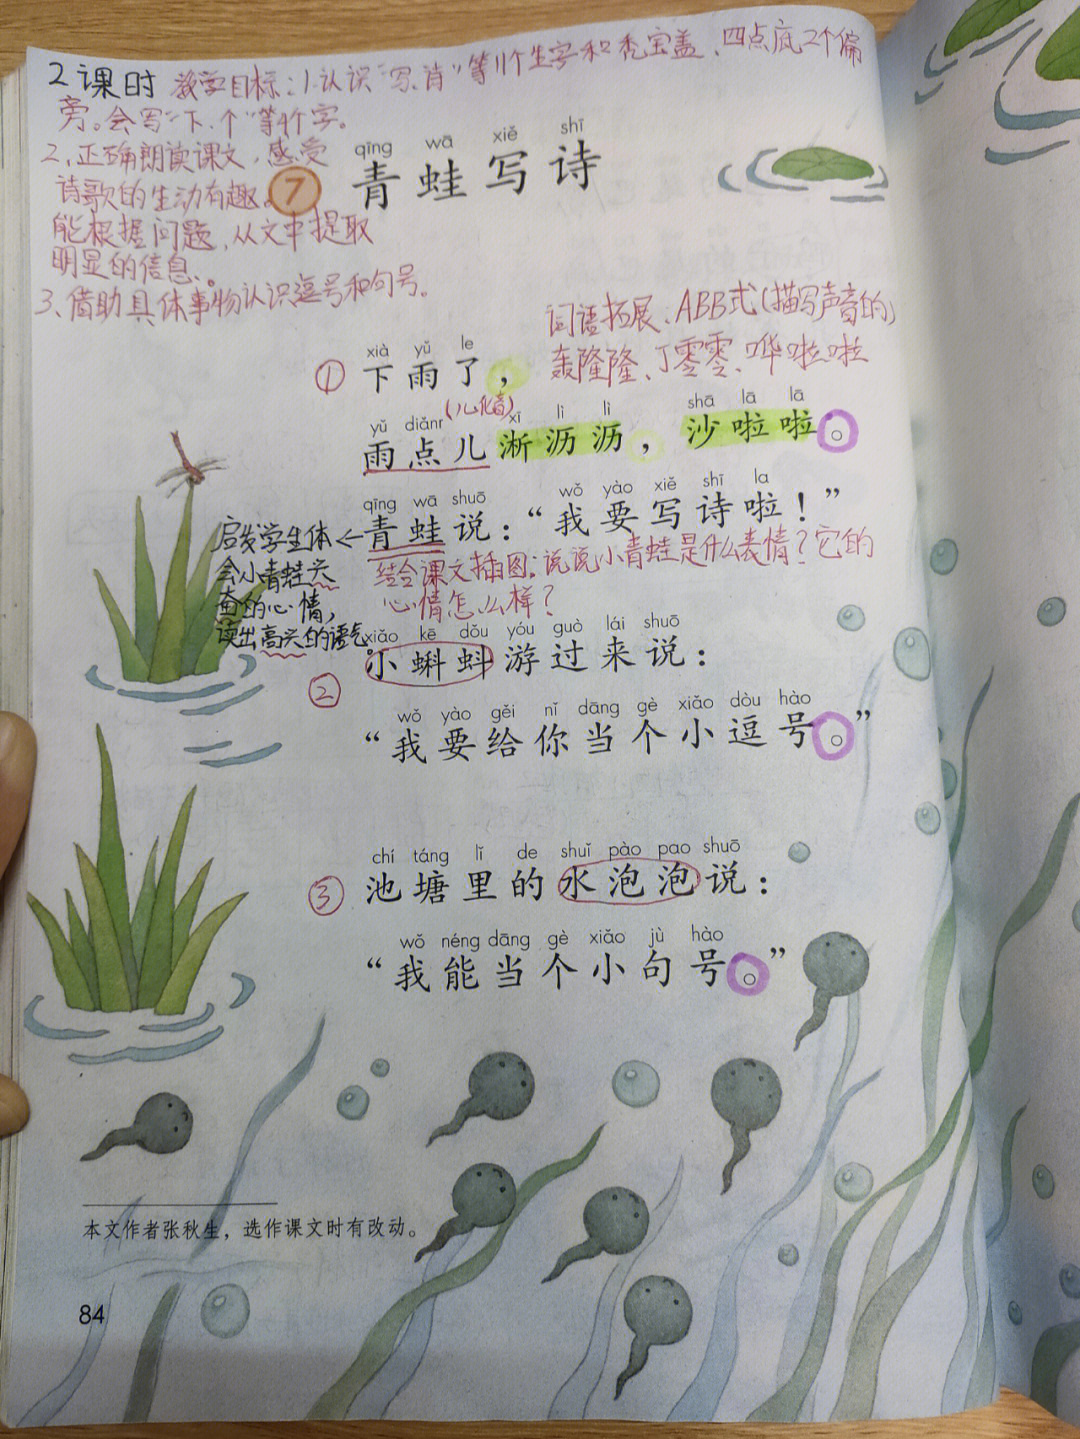 2课时 教学目标:1.认识"写、诗"等11个生字和秃宝盖、四点底2个偏
旁。会写"下、个"等4个字。
2、正确朗读课文,感受
诗歌的生动有趣。
能根据问题,从文中提取
明显的信息。
3、借助具体事物认识逗号和句号。
7
qīng wā xiě shī
青蛙写诗
词语拓展、ABB式(描写声音的)
轰隆隆、丁零零、哗啦啦
xià yǔ le
① 下雨了,
(儿化音)
yǔ diǎnr xī lì lì shā lā lā
雨点儿淅沥沥,沙啦啦。
qīng wā shuō wǒ yào xiě shī la
青蛙说:“我要写诗啦!”
启发学生体
会小青蛙兴
奋的心情,
读出高兴的语气。
结合课文插图:说说小青蛙是什么表情?它的
心情怎么样?
xiǎo kē dǒu yóu guò lái shuō
② 小蝌蚪游过来说:
wǒ yào gěi nǐ dāng gè xiǎo dòu hào
“我要给你当个小逗号。”
chí táng lǐ de shuǐ pào pao shuō
③ 池塘里的水泡泡说:
wǒ néng dāng gè xiǎo jù hào
“我能当个小句号。”
本文作者张秋生,选作课文时有改动。
84